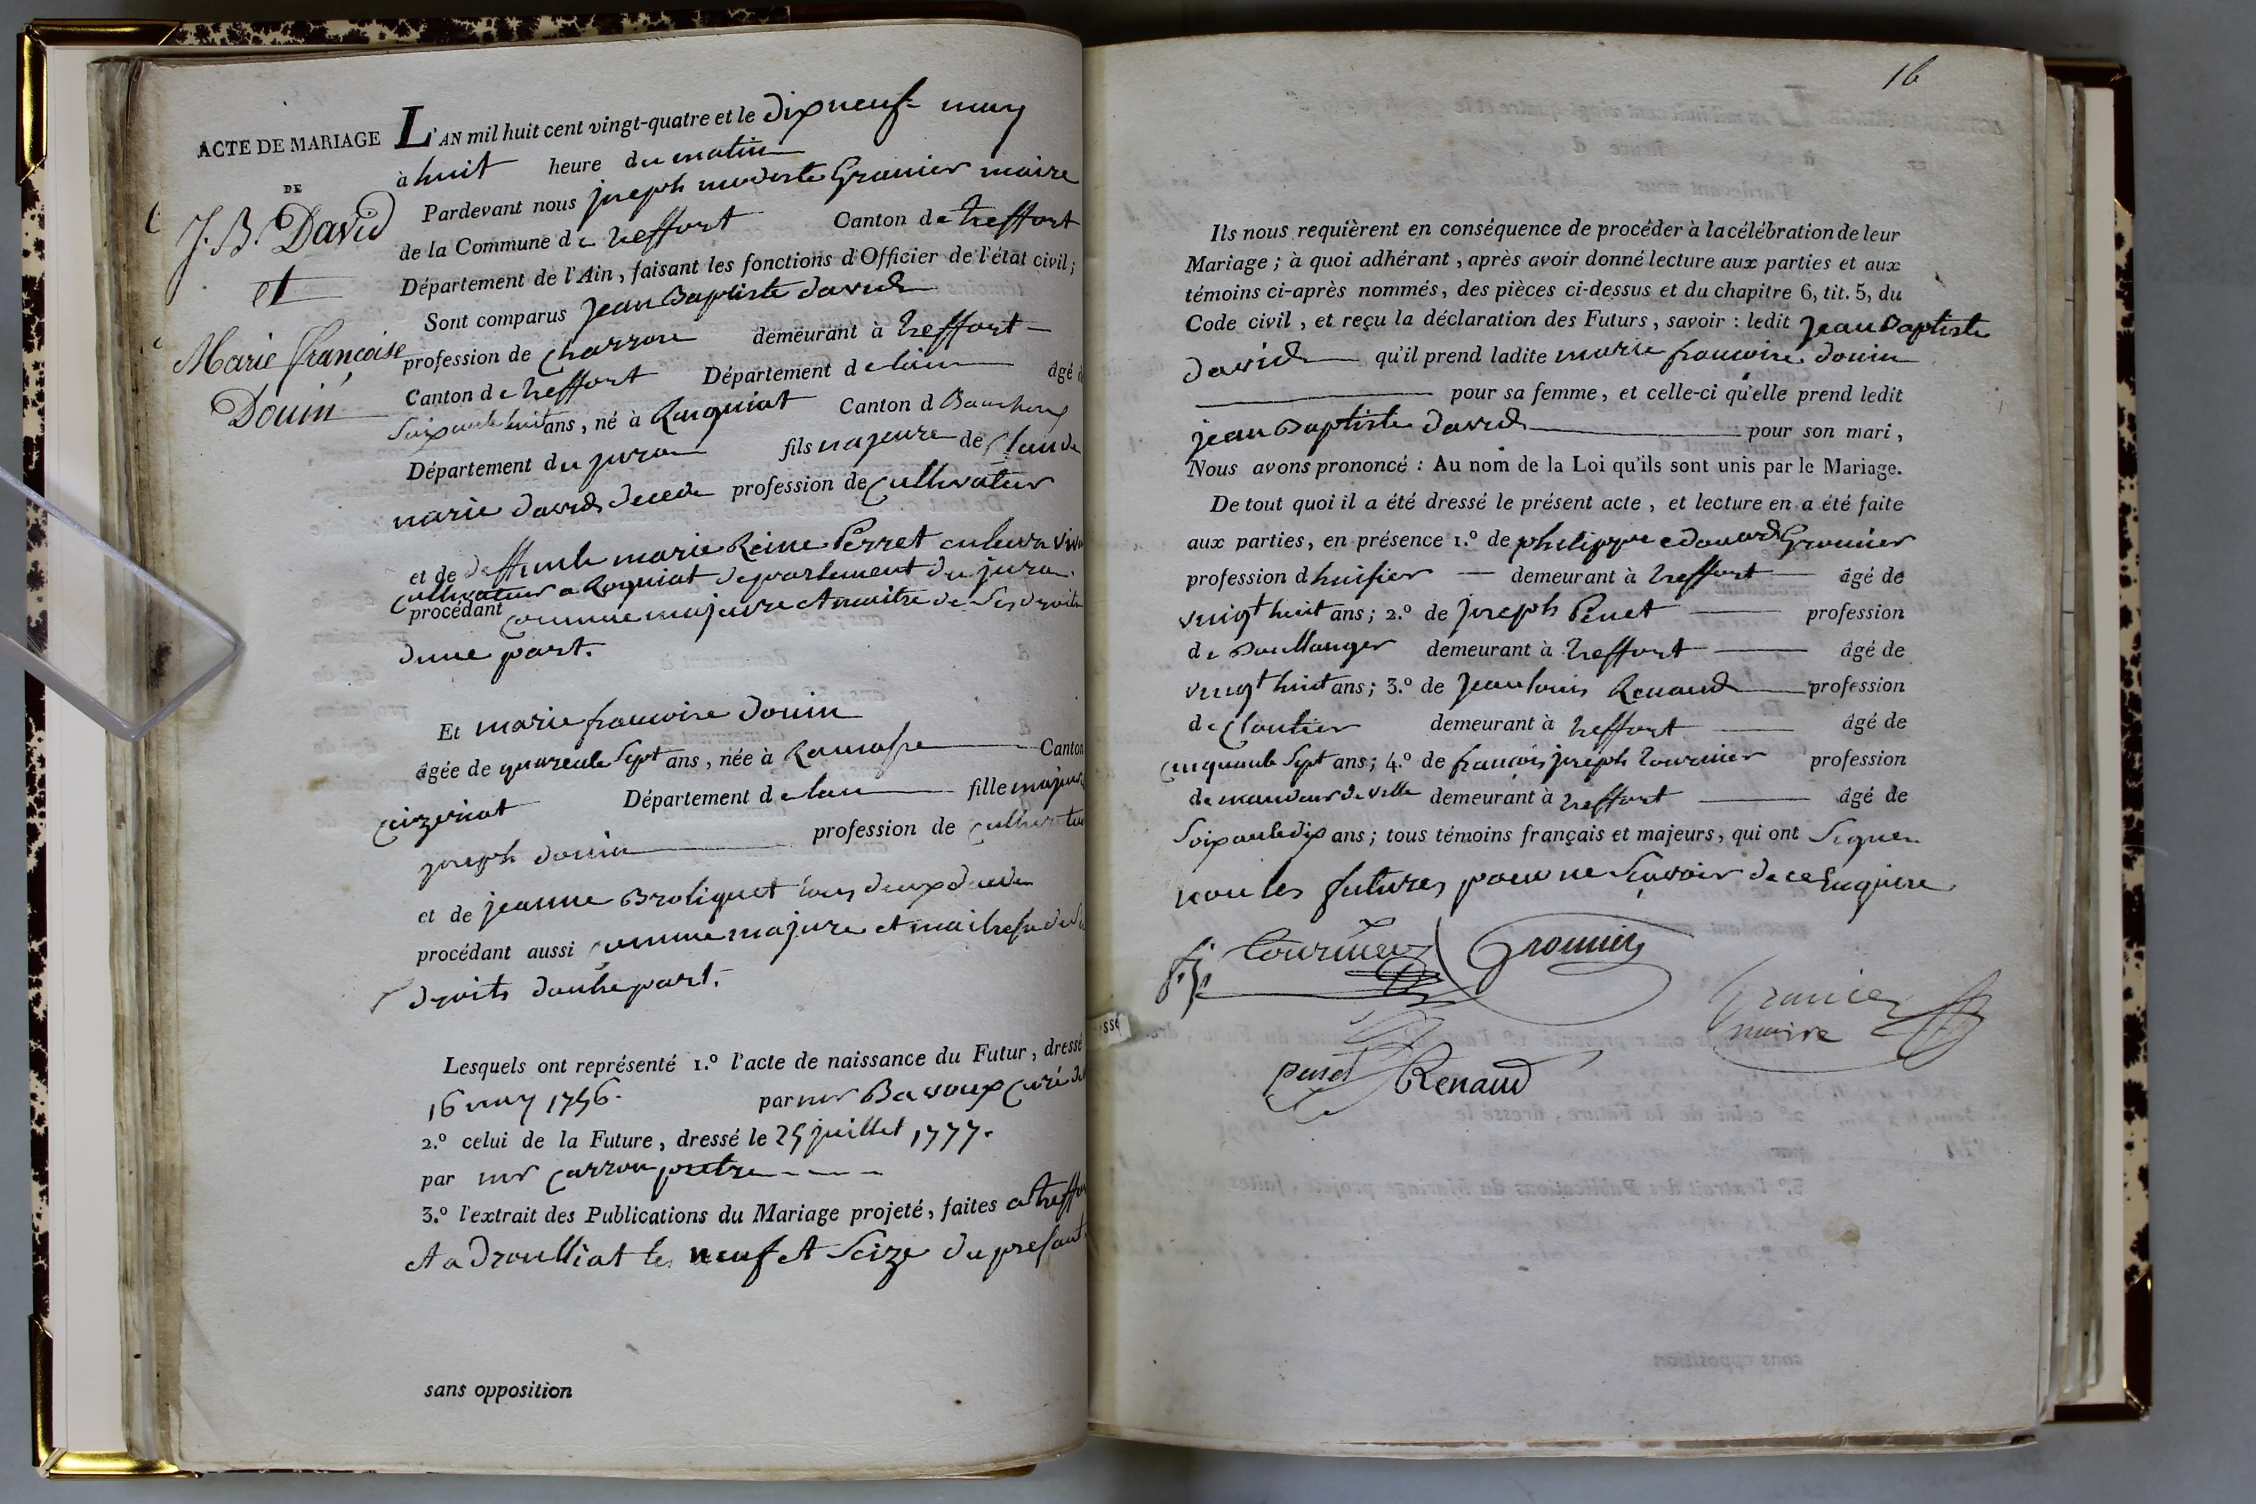 ACTE DE MARIAGE
DE
J. B. David
et
Marie françoise
Douin
L'AN mil huit cent vingt-quatre et le dixneuf may
à huit heure du matin
Pardevant nous joseph modeste Gromier maire
de la Commune de treffort Canton de treffort
Département de l'Ain, faisant les fonctions d'Officier de l'état civil;
Sont comparus jean Baptiste david
profession de charron demeurant à treffort
Canton de treffort Département de lain âgé d
Soixante huit ans, né à Canton d
Département du jura fils majeure de Claude
marie david decede profession de Cultivateur
et de deffunte marie Reine Perret
Cultivateur a departement du jura
procédant comme majeure et maitre de Ses droits
dune part.
Et marie francoise douin
âgée de quarente Sept ans, née à Ramasse Canton
Ceizeriat Département de lain fille majeure
joseph douin profession de Cultivateu
et de jeanne Broliquet tous deux decede
procédant aussi comme majure et maitresse de Se
droits dautre part.
Lesquels ont représenté 1.º l'acte de naissance du Futur, dressé
16 may 1756. par mr Bavoux Curé de
2.º celui de la Future, dressé le 25 juillet 1777.
par mr Carron pretre
3.º l'extrait des Publications du Mariage projeté, faites a treffor
et a Drouilliat les neuf et Seize du presant
sans opposition
16
Ils nous requièrent en conséquence de procéder à la célébration de leur
Mariage; à quoi adhérant, après avoir donné lecture aux parties et aux
témoins ci-après nommés, des pièces ci-dessus et du chapitre 6, tit. 5, du
Code civil, et reçu la déclaration des Futurs, savoir: ledit jean Baptiste
david qu'il prend ladite marie francoise douin
pour sa femme, et celle-ci qu'elle prend ledit
jean Baptiste david pour son mari,
Nous avons prononcé: Au nom de la Loi qu'ils sont unis par le Mariage.
De tout quoi il a été dressé le présent acte, et lecture en a été faite
aux parties, en présence 1.º de philippe edouard Gromier
profession d huissier demeurant à treffort âgé de
vingt huit ans; 2.º de joseph Penet profession
de Boullanger demeurant à treffort âgé de
vingt huit ans; 3.º de jean louis Renaud profession
de Cloutier demeurant à treffort âgé de
cinquante Sept ans; 4.º de francois joseph tournier profession
de mandeur de ville demeurant à treffort âgé de
Soixante dix ans; tous témoins français et majeurs, qui ont Signer
non les futures pour ne Scavoir de ce Enquire
f. j. tournier Gromier
Gromier
maire
penet Renaud